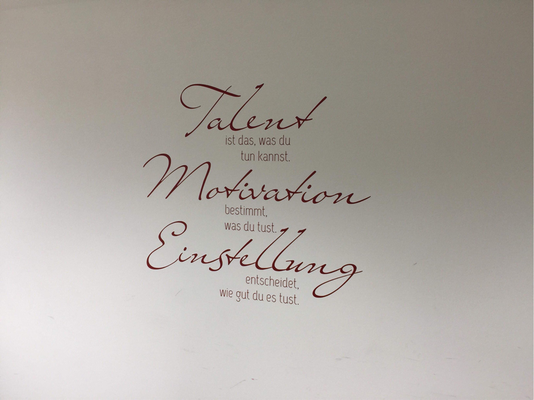 Talent
ist das, was du
tun kannst.
Motivation
bestimmt,
was du tust.
Einstellung
entscheidet,
wie gut du es tust.